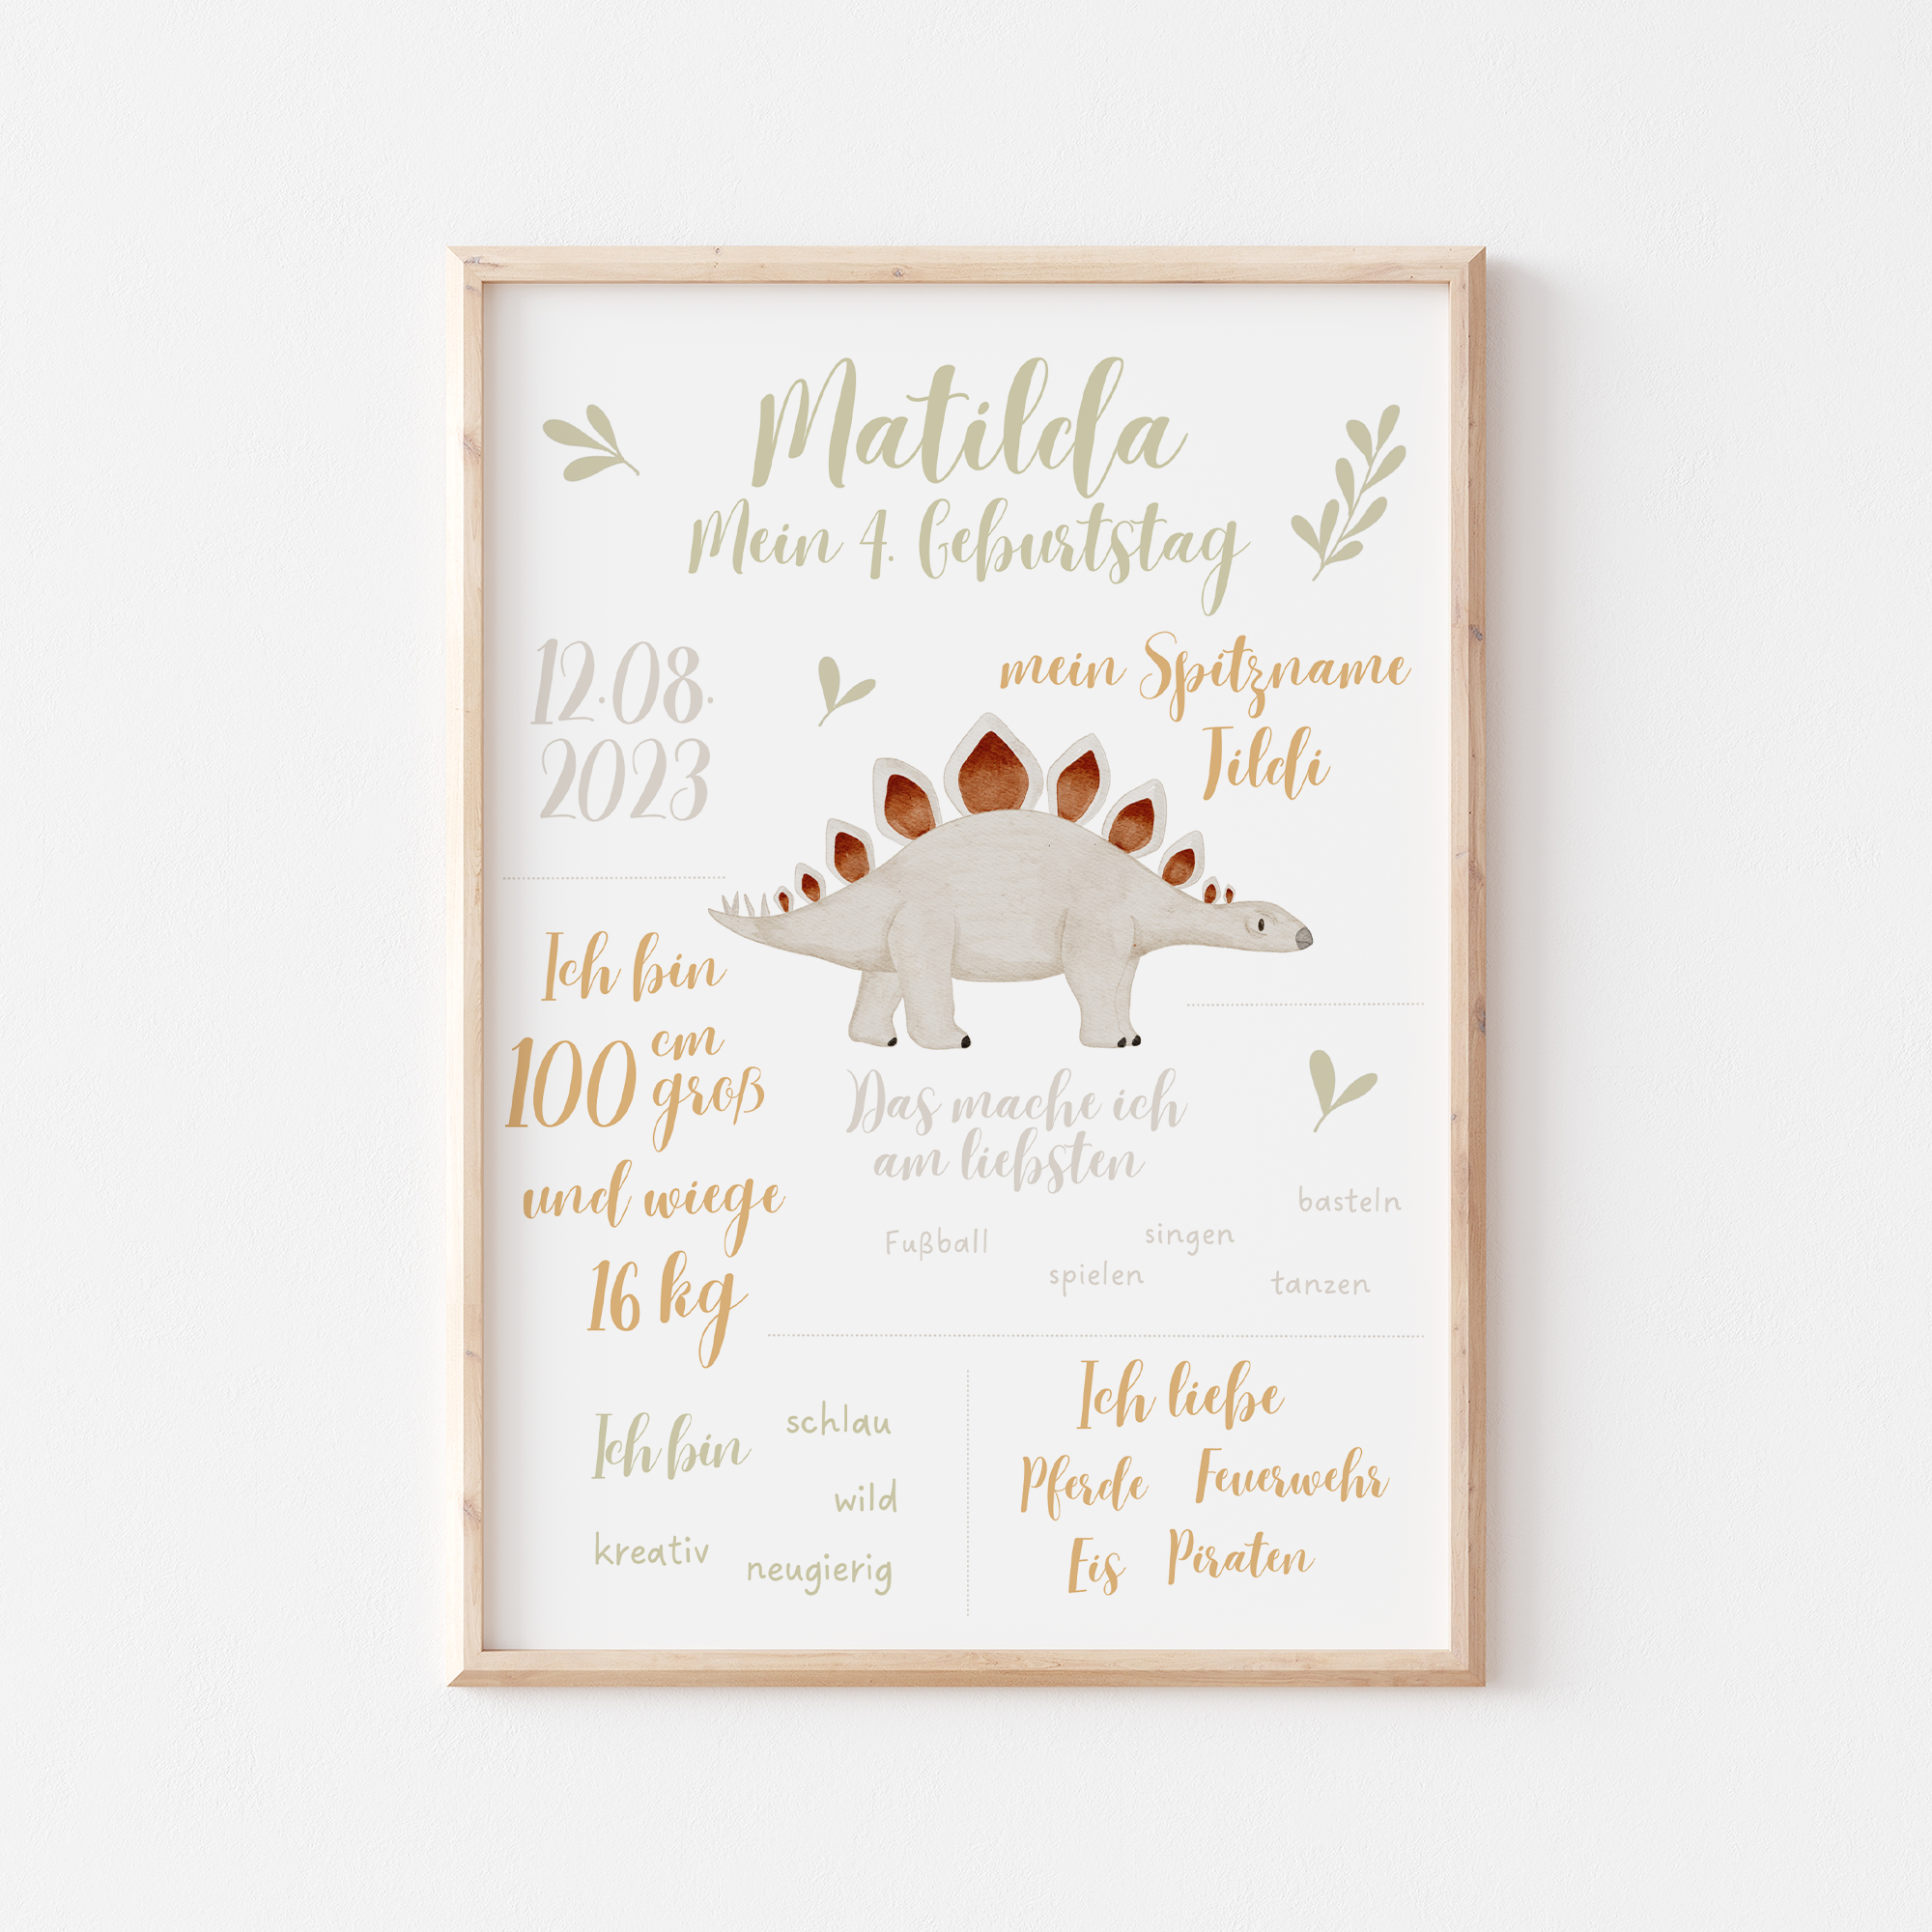 Matilda
Mein 4. Geburtstag
12.08.
2023
mein Spitzname
Tildi
Ich bin
100 cm
groß
und wiege
16 kg
Das mache ich
am liebsten
basteln
Fußball
singen
spielen
tanzen
Ich bin
schlau
wild
kreativ
neugierig
Ich liebe
Pferde Feuerwehr
Eis Piraten